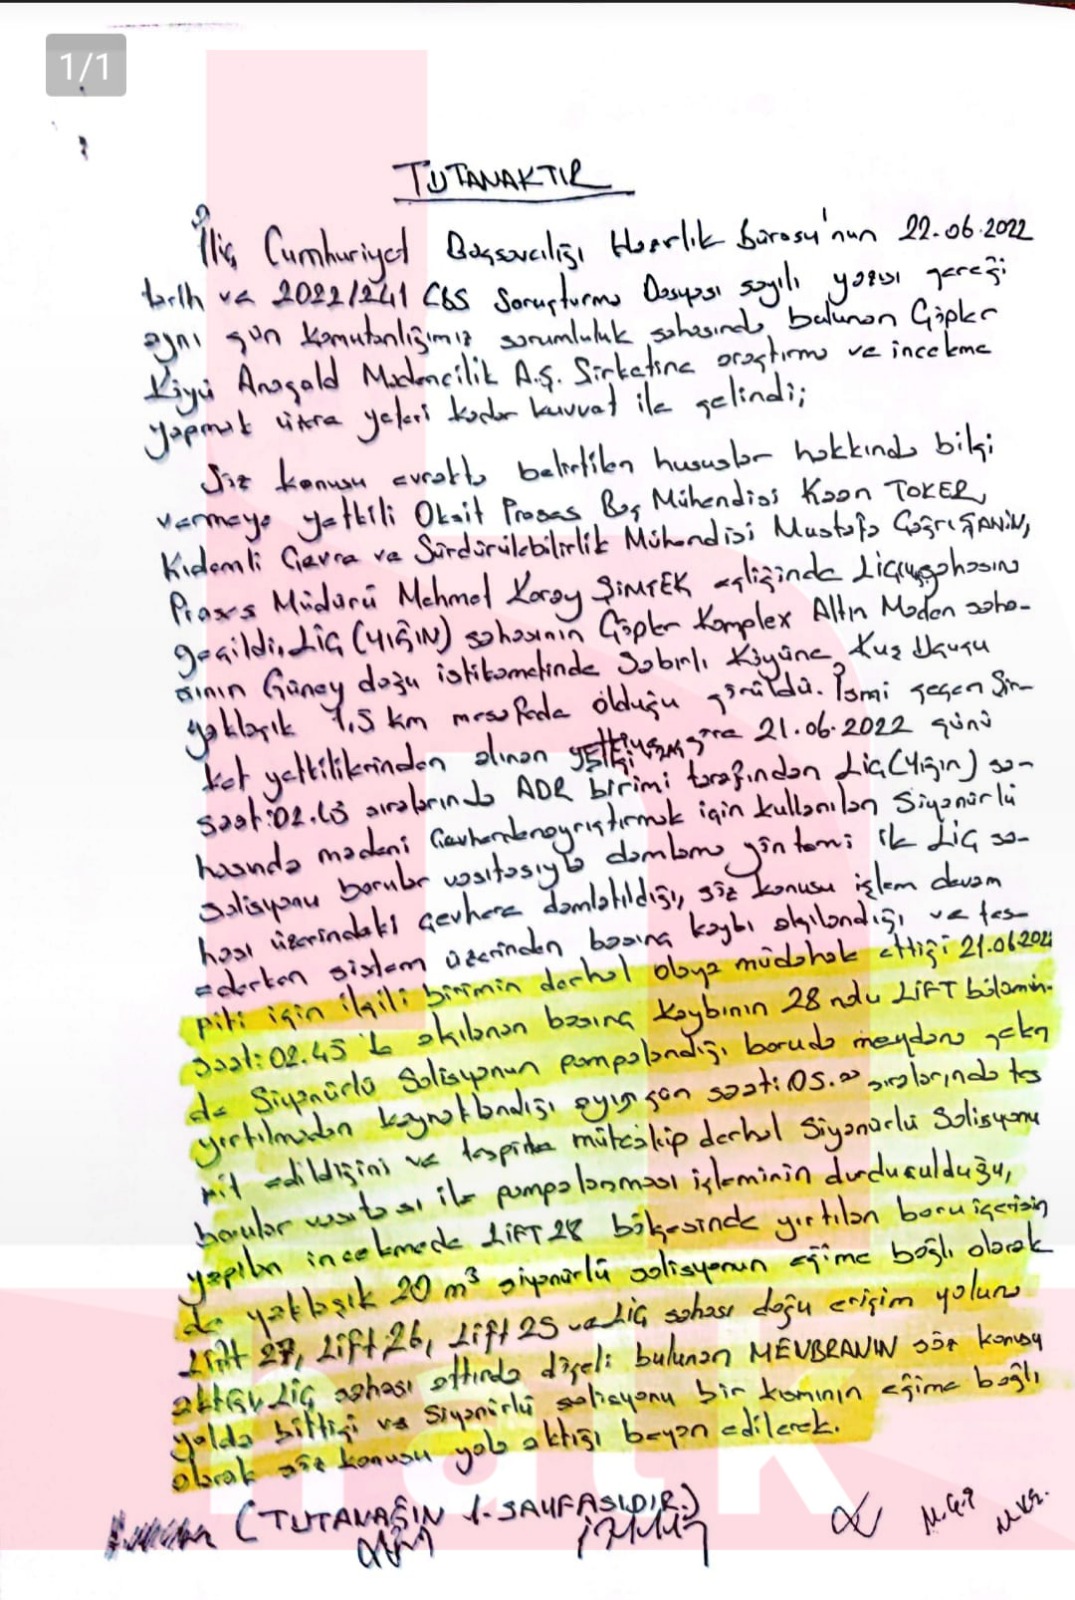 1/1
TUTANAKTIR
İliç Cumhuriyet Başsavcılığı Hazırlık Bürosu'nun 22.06.2022
tarih ve 2022/241 CBS Soruşturma Dosyası sayılı yazısı gereği
aynı gün Komutanlığımız sorumluluk sahasında bulunan Çöpler
Köyü Anagold Madencilik A.Ş. Şirketine araştırma ve inceleme
yapmak üzere yeteri kadar kuvvet ile gelindi;
Söz konusu evrakta belirtilen hususlar hakkında bilgi
vermeye yetkili Oksit Proses Baş Mühendisi Kaan TOKER,
Kıdemli Çevre ve Sürdürülebilirlik Mühendisi Mustafa
Proses Müdürü Mehmet Koray ŞİMŞEK eşliğinde Liç sahasına
geçildi, LİÇ (YIĞIN) sahasının Çöpler Komplex Altın Maden saha-
sının Güney doğu istikametinde Sabırlı Köyüne, Kuş Uçuşu
yaklaşık 1,5 km mesafede olduğu görüldü. İsmi geçen Şir-
ket yetkililerinden alınan göre 21.06.2022 günü
saat:02.45 sıralarında ADR birimi tarafından Liç (Yığın) sa-
hasında madeni Cevherden ayrıştırmak için kullanılan Siyanürlü
Solisyonu borular vasıtasıyla damlama yöntemi ile LİÇ sa-
hası üzerindeki cevhere damlatıldığı, söz konusu işlem devam
ederken sistem üzerinden basınç kaybı algılandığı ve tes-
piti için ilgili birimin derhal olaya müdahale ettiği 21.06.2022
saat:02.45'te algılanan basınç kaybının 28 ndu LİFT bölümün-
de Siyanürlü Solisyonun pompalandığı boruda meydana gelen
yırtılmadan kaynaklandığı aynı gün saat:05.00 sıralarında tes
pit edildiğini ve tespite müteakip derhal Siyanürlü Solisyonu
borular vasıtası ile pompalanması işleminin durdurulduğu,
yapılan incelemede LİFT 28 bölgesinde yırtılan boru içerisin
de yaklaşık 20 m³ siyanürlü solisyonun eğime bağlı olarak
Lift 27, Lift 26, Lift 25 ve Liç sahası doğu erişim yoluna
aktığı, Liç sahası altında döşeli bulunan MEVBRANIN söz konusu
yolda bittiği ve Siyanürlü solisyonu bir kısmının eğime bağlı
olarak söz konusu yola aktığı beyan edilerek.
(TUTANAĞIN 1. SAYFASIDIR.)
halk